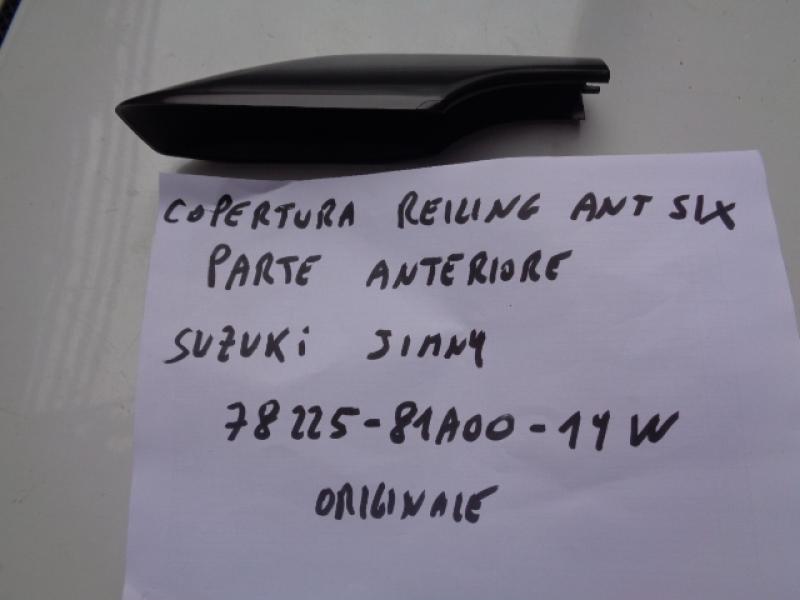 COPERTURA REILING ANT SIX
PARTE ANTERIORE
SUZUKI JIMNY
78225-81A00-1YW
ORIGINALE